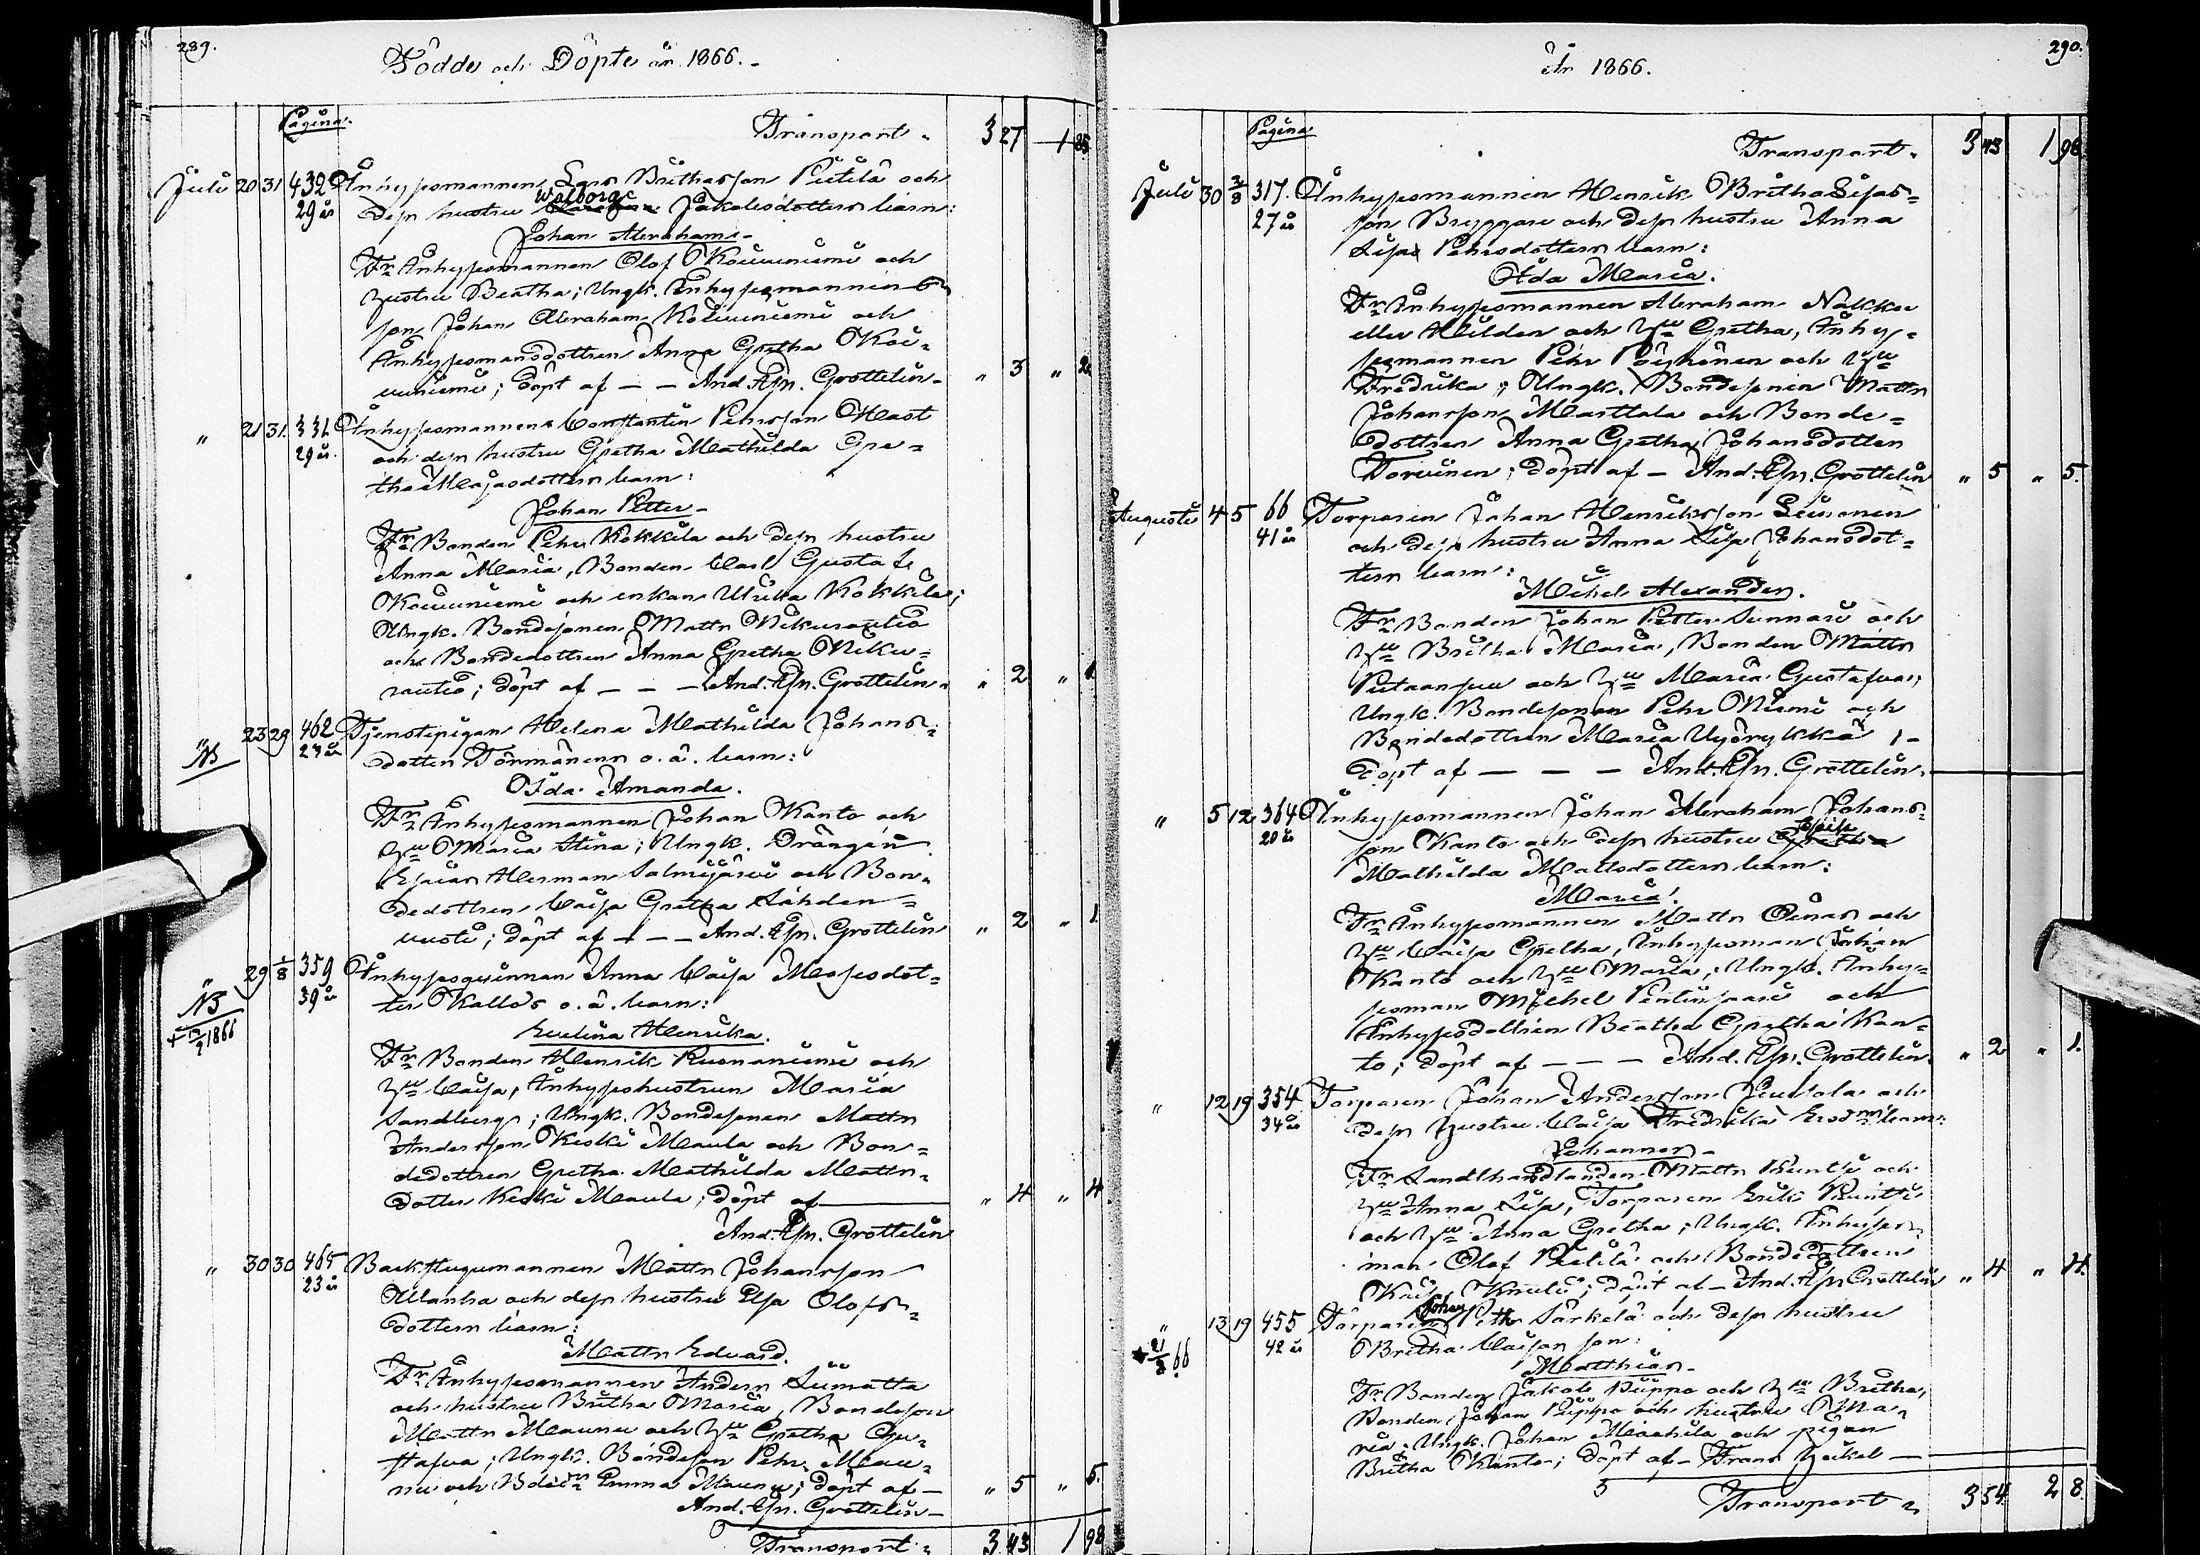 289.
Födde och Döpte år 1866.
Pagina.
Transport 327 1 85
Juli 20 31 432 Inhysesmannen Lars Brithasson Pietilä och
29 år dess hustru Walborg Jakobsdotters barn:
Johan Abraham
Fr. Inhysesmannen Olof Koiuuniemi och
hustru Beatha; Ungk. Inhysesmannen
son Johan Abraham Koiuuniemi och
Inhysesmansdottren Anna Gretha Koi-
uuniemi; döpt af — — And. Esn. Grottelin " 3 " 2
" 21 31. 331 Inhysesmannen Constantin Pehrsson Mast
29 år. och dess hustru Gretha Mathilda Gre-
tha Majasdotters barn:
Johan Petter
Fr. Bonden Pehr Kokkila och dess hustru
Anna Maria, Bonden Carl Gustaf
Koiuuniemi och enkan Ulrica Kokkila;
Ungk. Bondesonen Matts Nikurautio
och Bondedottren Anna Gretha Niku-
rautio; döpt af — — — And. Esn. Grottelin " 2 " 1
" 23 29 462 Tjenstepigan Helena Mathilda Johans-
NB 24 år dotter Törmänens o. ä. barn:
Ida Amanda.
Fr. Inhysesmannen Johan Kanto och
hu Maria Stina; Ungk. Drängen
Esaias Herman Salmijärvi och Bon-
dedottren Caisa Gretha Lähden-
uusti; döpt af — — — And. Esn. Grottelin " 2 " 1.
" 29 1/8 359 Inhysesqvinnan Anna Caisa Mosesdot-
NB 39 år ter Kallos o. ä. barn:
1866 Evelina Henrika.
Fr. Bonden Henrik Kuonaniemi och
hu Caisa, Inhyseshustrun Maria
Sandberg; Ungk. Bondesonen Matts
Andersson Keski Maula och Bon-
dedottren Gretha Mathilda Matts-
dotter Keski Maula; döpt af — " 4 " 4.
And. Esn. Grottelin
" 30 30 465 Backstugumannen Matts Johansson
23 år Ulanha och dess hustru Elsa Olofs-
dotters barn:
Matts Edvard.
Fr. Inhysesmannen Anders Liimatta
och hustru Britha Maria, Bondeson
Matts Maunu och hu Gretha Gu-
stafva; Ungk. Bondeson Pehr Mau-
nu och Bdedn Emma Maunu; döpt af — " 5 " 5.
And. Esn. Grottelin —
Transport 343 1 98
290.
År 1866.
Pagina
Transport 343 1 98
Juli 30 2/8 317. Inhysesmannen Henrik Britha Lisas-
27 år son Bryggare och dess hustru Anna
Lisa Pehrsdotters barn:
Ida Maria.
Fr. Inhysesmannen Abraham Nakku
eller Hilden och hu Gretha, Inhy-
sesmannen Pehr Pöyhönen och hu
Fredrika; Ungk. Bondesonen Matts
Johansson Marttala och Bonde-
dottren Anna Gretha Johansdotter
Torvinen; döpt af — And. Esn. Grottelin " 5 " 5.
Augusti 4 5 66 Torparen Johan Henriksson Leinonen
41 år och dess hustru Anna Lisa Johansdot-
ters barn:
Michel Alexander.
Fr. Bonden Johan Petter Sunnari och
hu Britha Maria, Bonden Matts
Pietaansuu och hu Maria Gustafva;
Ungk. Bondesonen Pehr Niemi och
Bondedottren Maria Uyörykkä;
döpt af — — — And. Esn. Grottelin.
" 5 12 364 Inhysesmannen Johan Abraham Johans-
20 år son Kanto och dess hustru
Mathilda Mattsdotters barn:
Maria.
Fr. Inhysesmannen Matts Oinas och
hu Caisa Gretha, Inhysesman Johan
Kanto och hu Maria; Ungk. Inhys-
sesman Michel Pentinsaari och
Inhysesdottren Beatha Gretha Kan-
to; döpt af — — — And. Esn. Grottelin. " 2 " 1.
" 12 19 354 Torparen Johan Andersson Jussola och
34 år dess hustru Caisa Fredrika Ersdrs barn:
Johannes
Fr. Landthandlanden Matts och
hu Anna Lisa, Torparen Erik
och hu Anna Gretha; Ungk. Inhyses-
man Olof Pietilä och Bondedottren
Kaisa; döpt af — And. Esn. Grottelin " 4 " 4.
" 13 19 455 Torparen Johan Petter Särkelä och dess hustru
42 år Britha Caisas son:
66 Matthias
Fr. Bonden Jakob Piippo och hu Britha,
Bonden Johan Piippo och hustru Ma-
ria, Ungk. Johan och pigan
Britha Kanto; döpt af — Frans Heikel —
Transport 354 2 8.